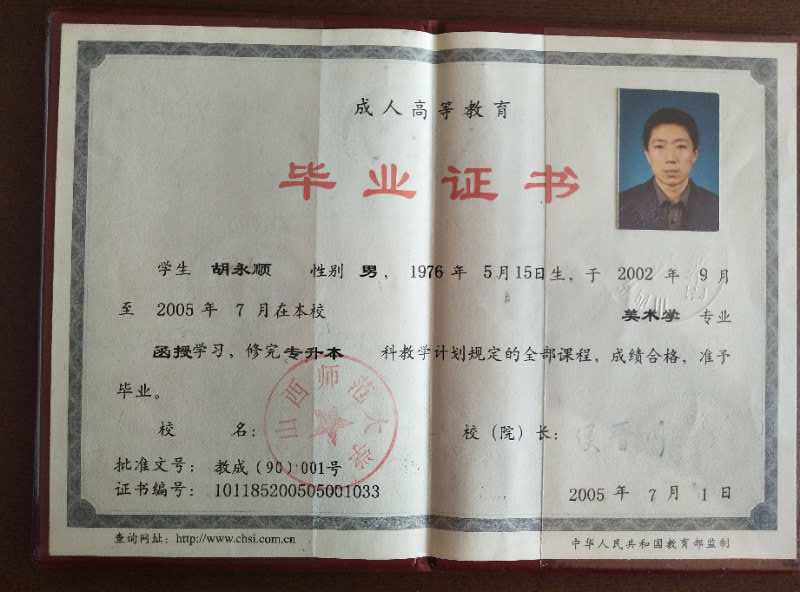 成人高等教育
毕业证书
学生 胡永顺 性别 男，1976 年 5月15日生，于 2002 年 9月
至 2005 年 7 月在本校 美术学 专业
函授学习，修完专升本 科教学计划规定的全部课程，成绩合格，准予
毕业。
山西师范大学
校 名： 校（院）长：
批准文号：教成（90）001号
证书编号：101185200505001033 2005 年 7 月 1 日
查询网址：http://www.chsi.com.cn 中华人民共和国教育部监制